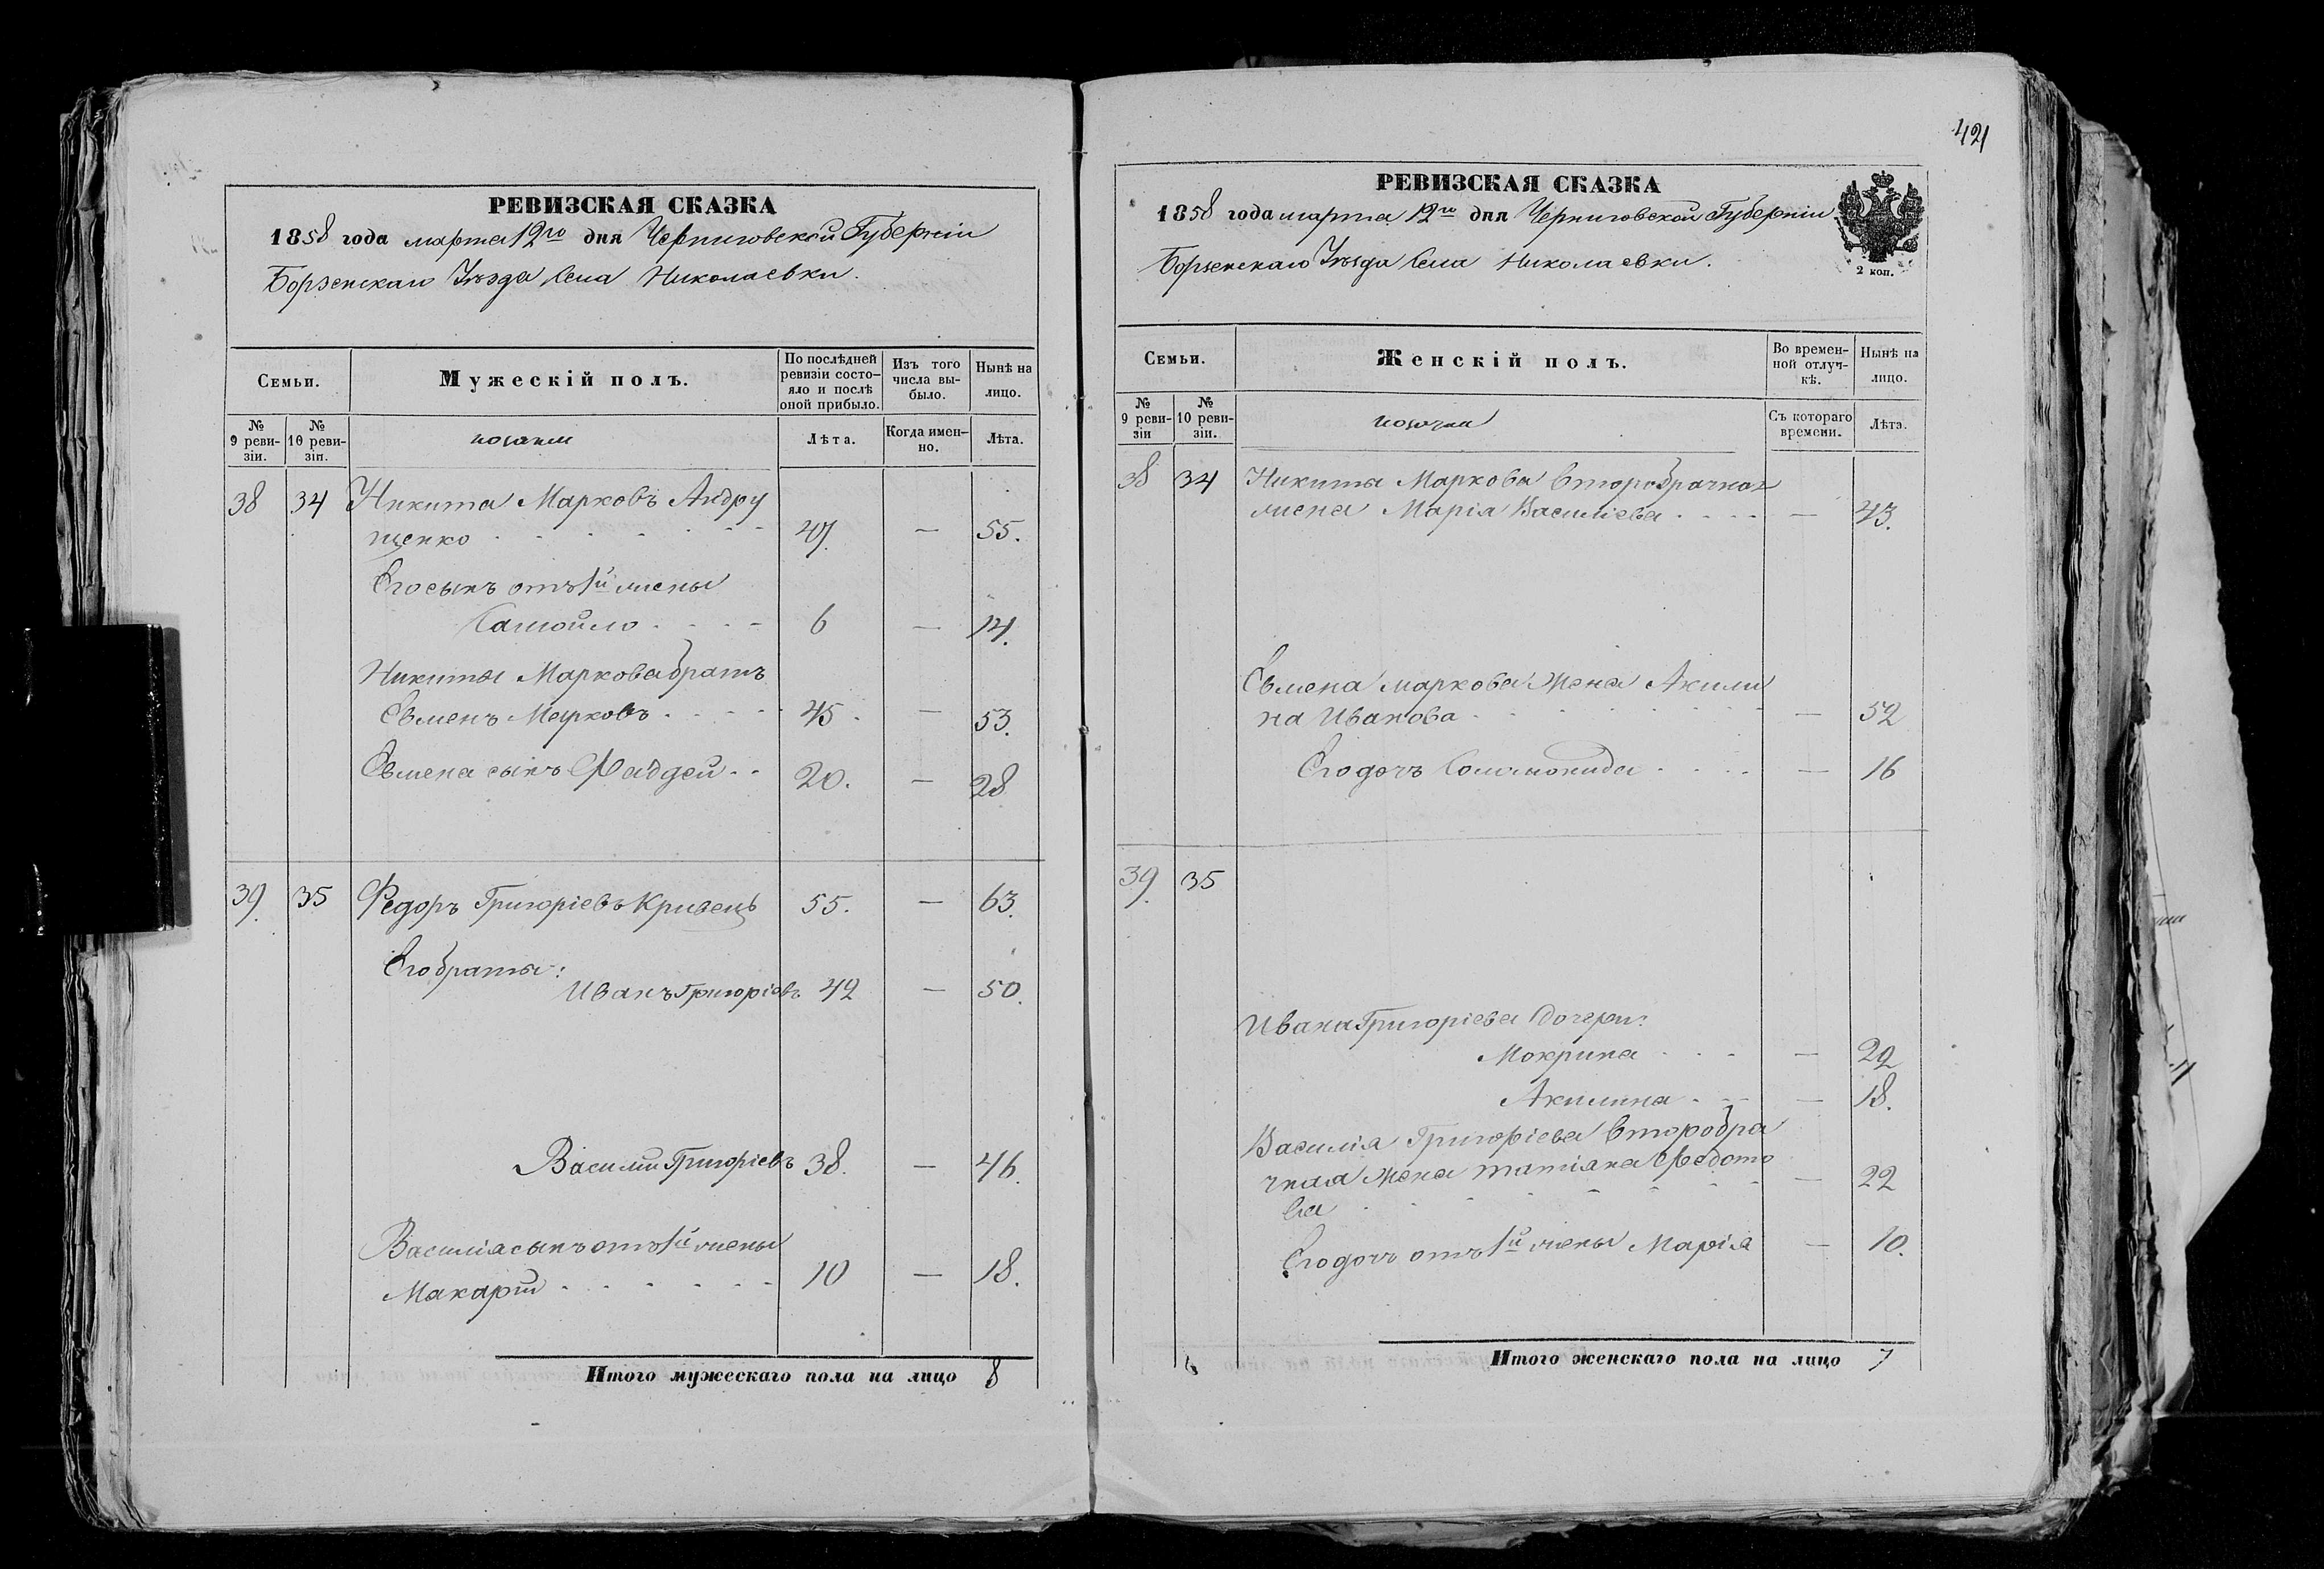 РЕВИЗСКАЯ СКАЗКА
1858 года марта 12го дня Черниговской Губерніи
Борзенскаго Уѣзда Села Николаевки.
Семьи.
Мужескій полъ.
По послѣдней ревизіи состо-
яло и послѣ оной прибыло.
Изъ того числа вы-
было.
Нынѣ на лицо.
№ 9 реви-
зіи.
№ 10 реви-
зіи.
козаки
Лѣта.
Когда имен-
но.
Лѣта.
38 34 Никита Марковъ Андру
щенко 47. — 55.
Его сынъ отъ 1й жены
Самойло 6 — 14.
Никиты Маркова братъ
Евменъ Марковъ 45. — 53.
Евмена сынъ Фаддей 20. — 28
39. 35 Федоръ Григоріевъ Кривець 55. — 63.
Его браты:
Иванъ Григоріевъ 42 — 50.
Василій Григоріевъ 38. — 46.
Василія сынъ отъ 1й жены
Макарій 10 — 18.
Итого мужескаго пола на лицо 8
421
РЕВИЗСКАЯ СКАЗКА
1858 года марта 12го дня Черниговской Губерніи
Борзенскаго Уѣзда Села Николаевки.
2 коп.
Семьи.
Женскій полъ.
Во времен-
ной отлуч-
кѣ.
Нынѣ на
лицо.
№ 9 реви-
зіи
№ 10 реви-
зіи.
козачки
Съ котораго
времени.
Лѣта.
38 34 Никиты Маркова второбрачная
жена Марія Василіева — 43.
Евмена Маркова жена Акили
на Иванова — 52
Его дочь Соломонида — 16
39. 35
Ивана Григоріева дочери:
Мокрина — 29
Акилина — 18.
Василія Григоріева второбра
чная жена Татіана Федото
ва — 22
Его дочь отъ 1й жены Марія — 10.
Итого женскаго пола на лицо 7